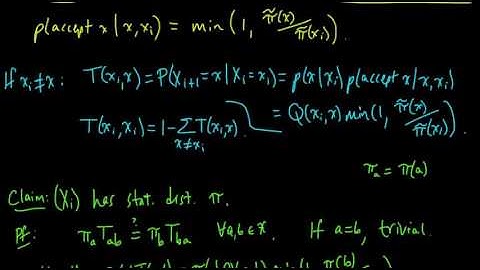 p(accept x | x, xᵢ) = min(1, π̃(x)/π̃(xᵢ)).
If xᵢ≠x: T(xᵢ,x) = P(Xᵢ₊₁=x | Xᵢ=xᵢ) = p(x|xᵢ) p(accept x | x, xᵢ)
= Q(xᵢ,x) min(1, π̃(x)/π̃(xᵢ)).
T(xᵢ,xᵢ) = 1-∑_{x≠xᵢ} T(xᵢ,x).
πₐ = π(a)
Claim: (Xᵢ) has stat. dist. π.
Pf: πₐTₐb ≟ π_bT_ba ∀a,b∈X. If a=b, trivial.